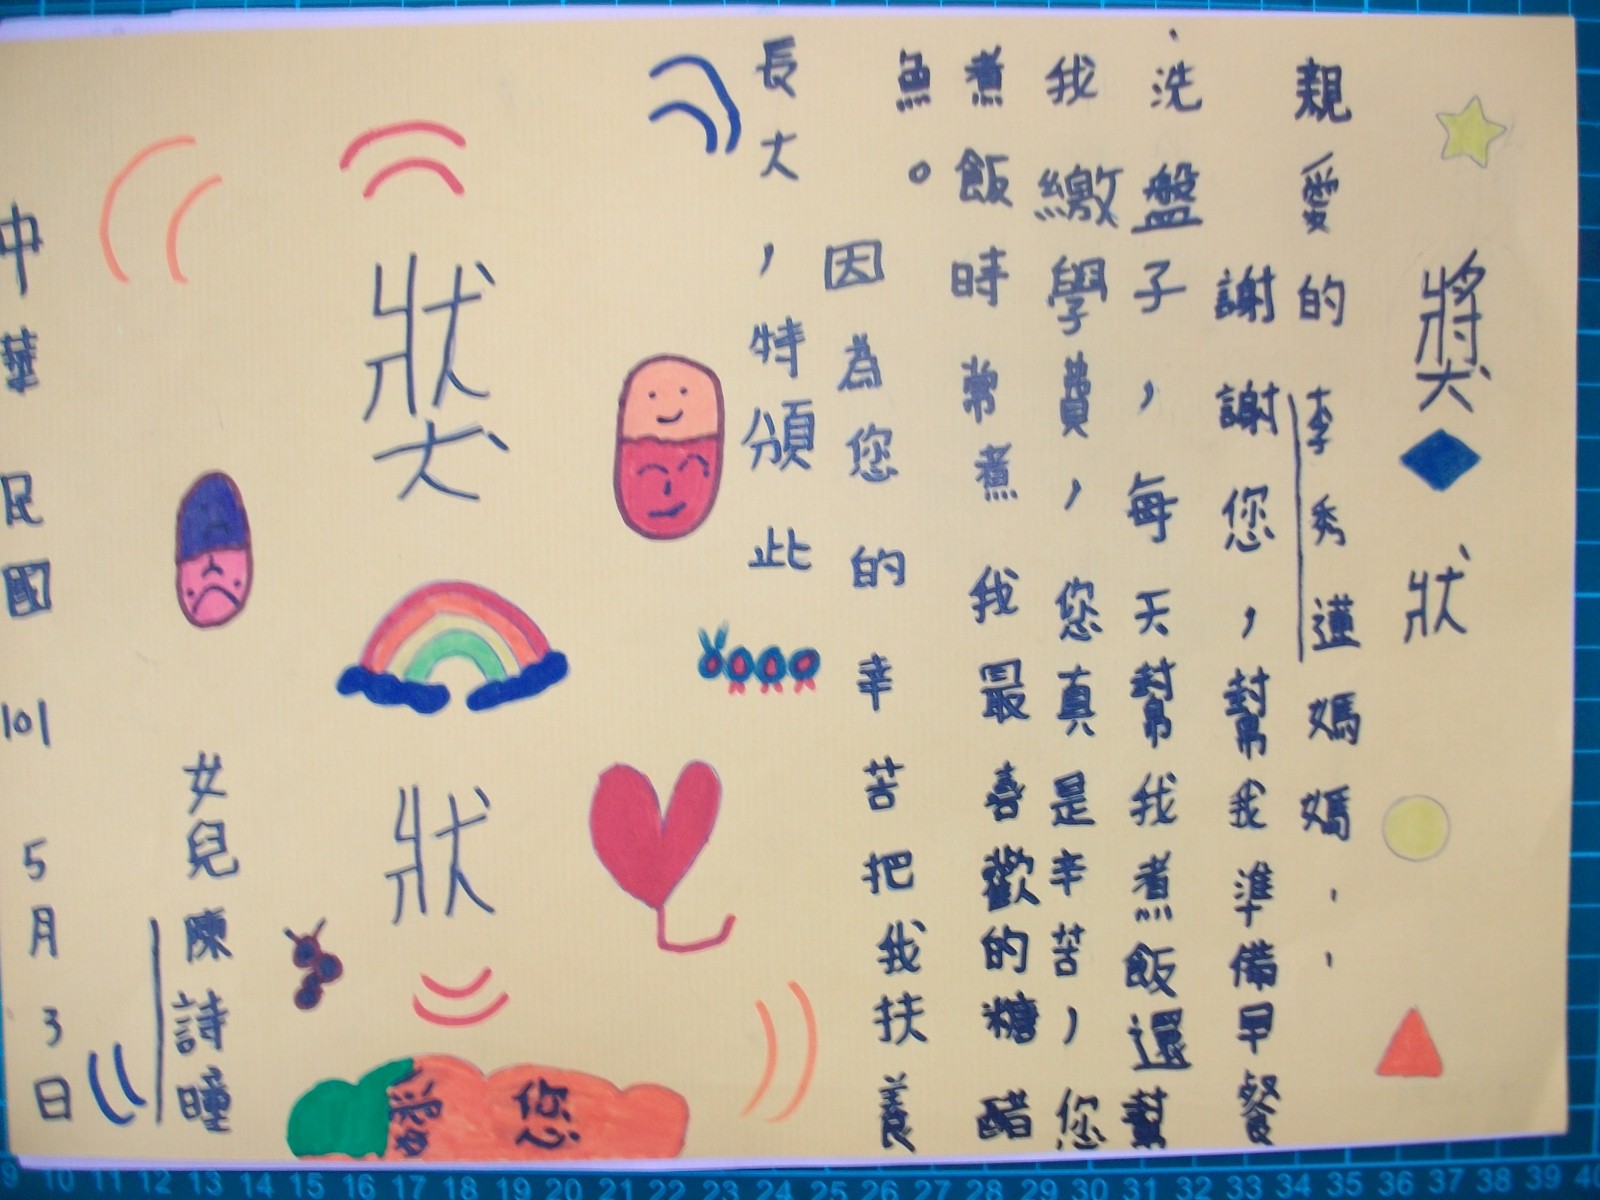 獎狀
親愛的李秀蓮媽媽：
謝謝您，幫我準備早餐
、洗盤子，每天幫我煮飯還幫
我繳學費，您真是辛苦，您
煮飯時常煮我最喜歡的糖醋
魚。
因為您的辛苦把我扶養
長大，特頒此
獎狀
女兒陳詩瞳
中華民國101 5月3日
愛您
9 10 11 12 13 14 15 16 17 18 19 20 21 22 23 24 25 26 27 28 29 30 31 32 33 34 35 36 37 38 39 40